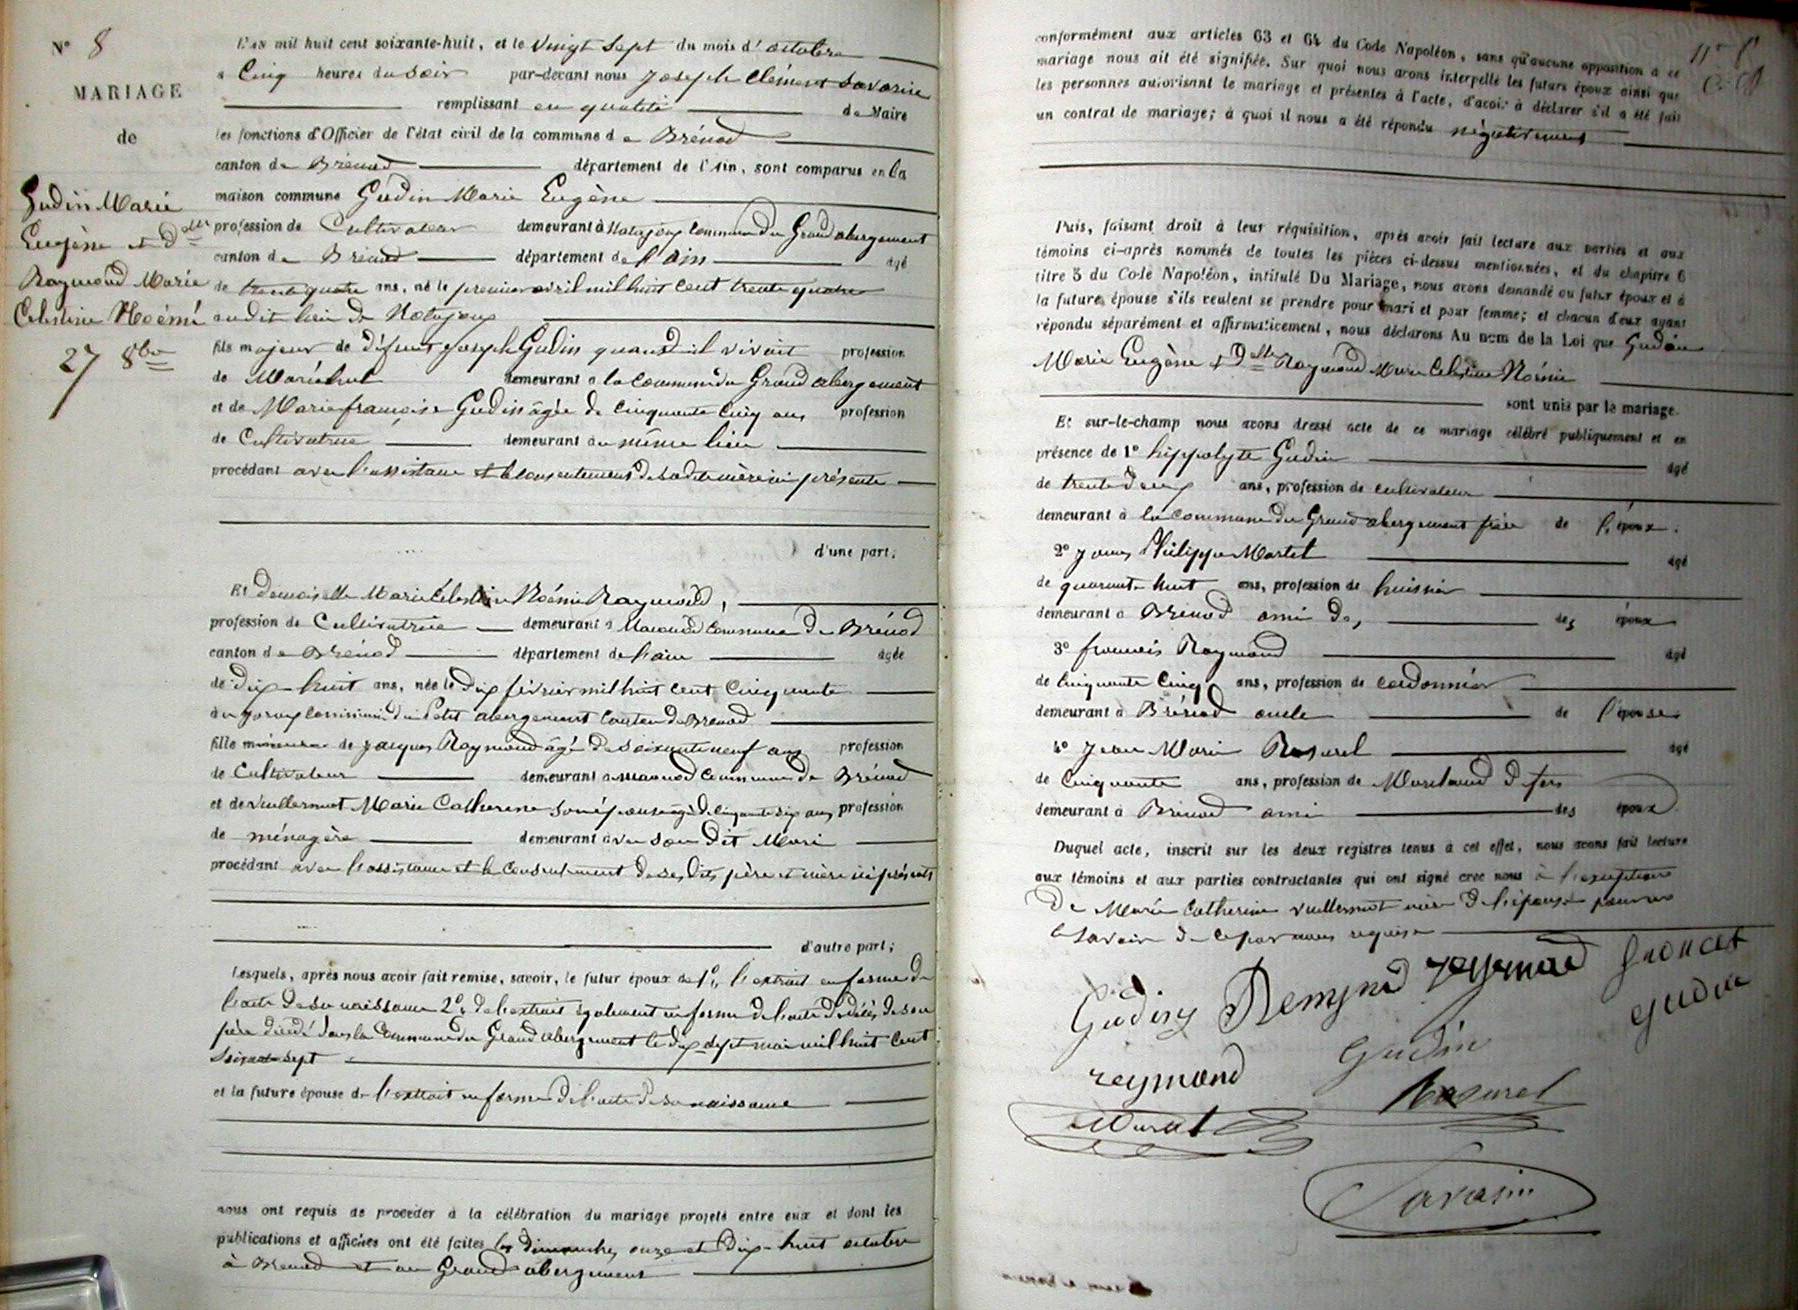 N° 8
MARIAGE
de
Gudin Marie
Eugène et Dlle
Raymond Marie
Célestine Noémi
27 8bre
L'AN mil huit cent soixante-huit, et le vingt sept du mois d'octobre
à cinq heures du soir par-devant nous Joseph Clément Savarin
remplissant en qualité de Maire
les fonctions d'Officier de l'état civil de la commune de Brénod
canton de Brénod département de l'Ain, sont comparus en la
maison commune Gudin Marie Eugène
profession de Cultivateur demeurant à commune du Grand abergement
canton de Brénod département de l'ain âgé
de trente quatre ans, né le premier avril mil huit cent trente quatre
au dit lieu de
fils majeur de défunt Joseph Gudin quand il vivait profession
de Maréchal demeurant à la commune du Grand abergement
et de Marie françoise Gudin âgée de cinquante cinq ans profession
de Cultivatrice demeurant au même lieu
procédant avec l'assistance et le consentement de sa dite mère ici présente
d'une part;
Et demoiselle Marie Célestine Noémie Raymond,
profession de Cultivatrice demeurant à commune de Brénod
canton de Brénod département de l'ain âgée
de dix-huit ans, née le dix février mil huit cent cinquante
commune du Petit abergement canton de Brénod
fille mineure de Jacques Raymond âgé de soixante neuf ans profession
de Cultivateur demeurant à commune de Brénod
et de Vuillermot Marie Catherine son épouse âgée de cinquante six ans profession
de ménagère demeurant avec son dit Mari
procédant avec l'assistance et le consentement de ses dits père et mère ici présents
d'autre part;
Lesquels, après nous avoir fait remise, savoir, le futur époux de 1° l'extrait en forme de
l'acte de sa naissance 2° de l'extrait également en forme de l'acte de décès de son
père décédé dans la commune du Grand abergement le dix sept mai mil huit cent
soixante sept
et la future épouse de l'extrait en forme de l'acte de sa naissance
nous ont requis de procéder à la célébration du mariage projeté entre eux et dont les
publications et affiches ont été faites les dimanches onze et dix-huit octobre
à Brénod et au Grand abergement
conformément aux articles 63 et 64 du Code Napoléon, sans qu'aucune opposition à ce
mariage nous ait été signifiée. Sur quoi nous avons interpellé les futurs époux ainsi que
les personnes autorisant le mariage et présentes à l'acte, d'avoir à déclarer s'il a été fait
un contrat de mariage; à quoi il nous a été répondu négativement
Puis, faisant droit à leur réquisition, après avoir fait lecture aux parties et aux
témoins ci-après nommés de toutes les pièces ci-dessus mentionnées, et du chapitre 6
titre 5 du Code Napoléon, intitulé Du Mariage, nous avons demandé au futur époux et à
la future épouse s'ils veulent se prendre pour mari et pour femme; et chacun d'eux ayant
répondu séparément et affirmativement, nous déclarons Au nom de la Loi que Gudin
Marie Eugène & Dlle Raymond Marie Célestine Noémie
sont unis par le mariage.
Et sur-le-champ nous avons dressé acte de ce mariage célébré publiquement et en
présence de 1° hippolyte Gudin âgé
de trente deux ans, profession de cultivateur
demeurant à la commune du Grand abergement frère de l'époux.
2° Philippe Martel âgé
de quarante huit ans, profession de huissier
demeurant à Brénod ami des époux
3° françois Raymond âgé
de cinquante cinq ans, profession de cordonnier
demeurant à Brénod oncle de l'épouse
4° Jean Marie Rosurel âgé
de cinquante ans, profession de Marchand de fer
demeurant à Brénod ami des époux
Duquel acte, inscrit sur les deux registres tenus à cet effet, nous avons fait lecture
aux témoins et aux parties contractantes qui ont signé avec nous à l'exception
de Marie Catherine Vuillermot mère de l'épouse pour ne
le savoir de ce par nous requise
Gudin Remond reymond
gudin
reymond Gudin
Rosurel
Savarin